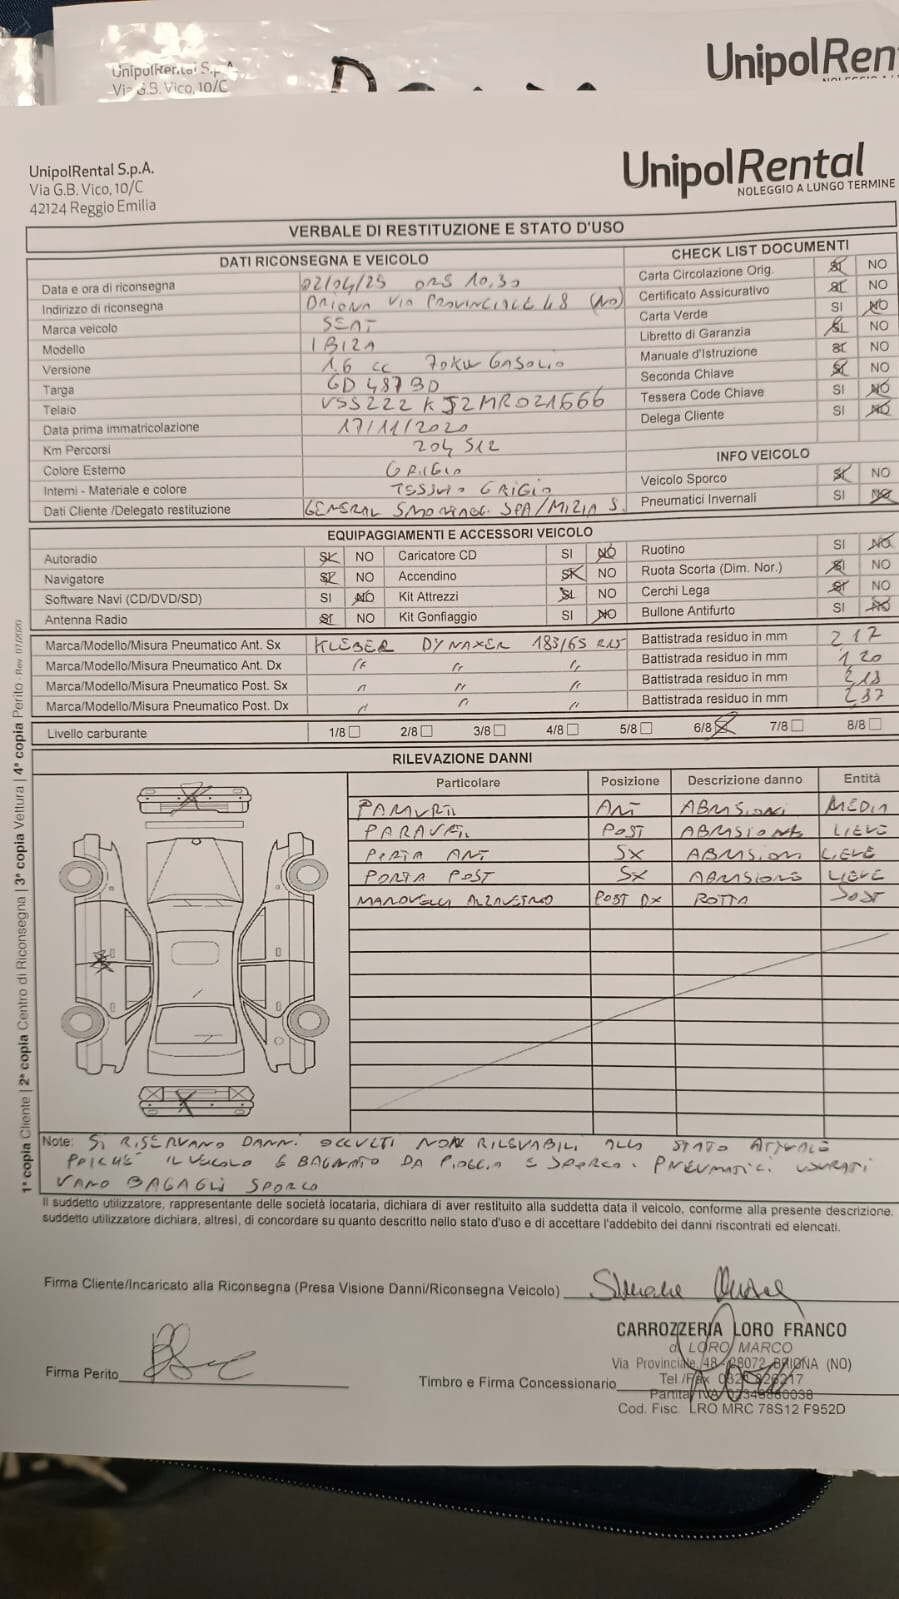 UnipolRental S.p.A.
Via G.B. Vico, 10/C
UnipolRen
UnipolRental S.p.A.
Via G.B. Vico, 10/C
42124 Reggio Emilia
UnipolRental
NOLEGGIO A LUNGO TERMINE
VERBALE DI RESTITUZIONE E STATO D'USO
DATI RICONSEGNA E VEICOLO
Data e ora di riconsegna 02/04/25 ORE 10,30
Indirizzo di riconsegna BRIONA VIA PROVINCIALE 48 (NO)
Marca veicolo SEAT
Modello IBIZA
Versione 1,6 cc 70KW GASOLIO
Targa GD 487 BD
Telaio VSSZZZ KJZMR021666
Data prima immatricolazione 17/11/2020
Km Percorsi 204 512
Colore Esterno GRIGIO
Interni - Materiale e colore TESSUTO GRIGIO
Dati Cliente /Delegato restituzione GENERAL SPA/
CHECK LIST DOCUMENTI
Carta Circolazione Orig. SI NO
Certificato Assicurativo SI NO
Carta Verde SI NO
Libretto di Garanzia SI NO
Manuale d'Istruzione SI NO
Seconda Chiave SI NO
Tessera Code Chiave SI NO
Delega Cliente SI NO
INFO VEICOLO
Veicolo Sporco SI NO
Pneumatici Invernali SI NO
EQUIPAGGIAMENTI E ACCESSORI VEICOLO
Autoradio SI NO Caricatore CD SI NO Ruotino SI NO
Navigatore SI NO Accendino SI NO Ruota Scorta (Dim. Nor.) SI NO
Software Navi (CD/DVD/SD) SI NO Kit Attrezzi SI NO Cerchi Lega SI NO
Antenna Radio SI NO Kit Gonfiaggio SI NO Bullone Antifurto SI NO
Marca/Modello/Misura Pneumatico Ant. Sx KLEBER DYNAXER 185/65 R15 Battistrada residuo in mm 2,17
Marca/Modello/Misura Pneumatico Ant. Dx " " " Battistrada residuo in mm 1,20
Marca/Modello/Misura Pneumatico Post. Sx " " " Battistrada residuo in mm 2,18
Marca/Modello/Misura Pneumatico Post. Dx " " " Battistrada residuo in mm 2,37
Livello carburante 1/8 2/8 3/8 4/8 5/8 6/8 7/8 8/8
RILEVAZIONE DANNI
Particolare Posizione Descrizione danno Entità
PARAURTI ANT ABRASIONI MEDIA
PARAURTI POST ABRASIONE LIEVE
PORTA ANT SX ABRASIONI LIEVE
PORTA POST SX ABRASIONE LIEVE
MANOVELLA ALZAVETRO POST DX ROTTA SOST
Note: SI RISERVANO DANNI OCCULTI NON RILEVABILI ALLO STATO ATTUALE
POICHE' IL VEICOLO E BAGNATO DA PIOGGIA E SPORCO. PNEUMATICI USURATI
VANO BAGAGLI SPORCO
Il suddetto utilizzatore, rappresentante delle società locataria, dichiara di aver restituito alla suddetta data il veicolo, conforme alla presente descrizione.
suddetto utilizzatore dichiara, altresì, di concordare su quanto descritto nello stato d'uso e di accettare l'addebito dei danni riscontrati ed elencati.
Firma Cliente/Incaricato alla Riconsegna (Presa Visione Danni/Riconsegna Veicolo)
CARROZZERIA LORO FRANCO
di LORO MARCO
Via Provinciale, 48 - 28072 BRIONA (NO)
Firma Perito
Timbro e Firma Concessionario
Tel./Fax
Partita IVA
Cod. Fisc. LRO MRC 78S12 F952D
1ª copia Cliente | 2ª copia Centro di Riconsegna | 3ª copia Vettura | 4ª copia Perito - Rev. 07/2020